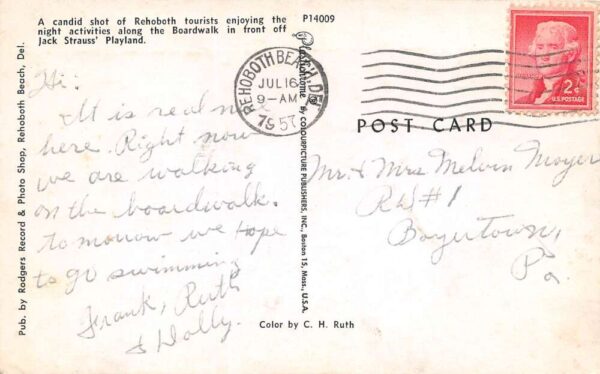 A candid shot of Rehoboth tourists enjoying the
night activities along the Boardwalk in front off
Jack Strauss' Playland.
P14009
Pub. by Rodgers Record & Photo Shop, Rehoboth Beach, Del.
Hi:
It is real nice
here. Right now
we are walking
on the boardwalk.
tomorrow we hope
to go swimming
Frank, Ruth
& Dolly.
Plastichrome by COLOURPICTURE PUBLISHERS, INC., Boston 15, Mass., U.S.A.
REHOBOTH BEACH, DEL.
JUL 16
9-AM
1957
2¢
U.S. POSTAGE
POST CARD
Mr. & Mrs Melvin Moyer
Rd #1
Boyertown,
Pa.
Color by C. H. Ruth